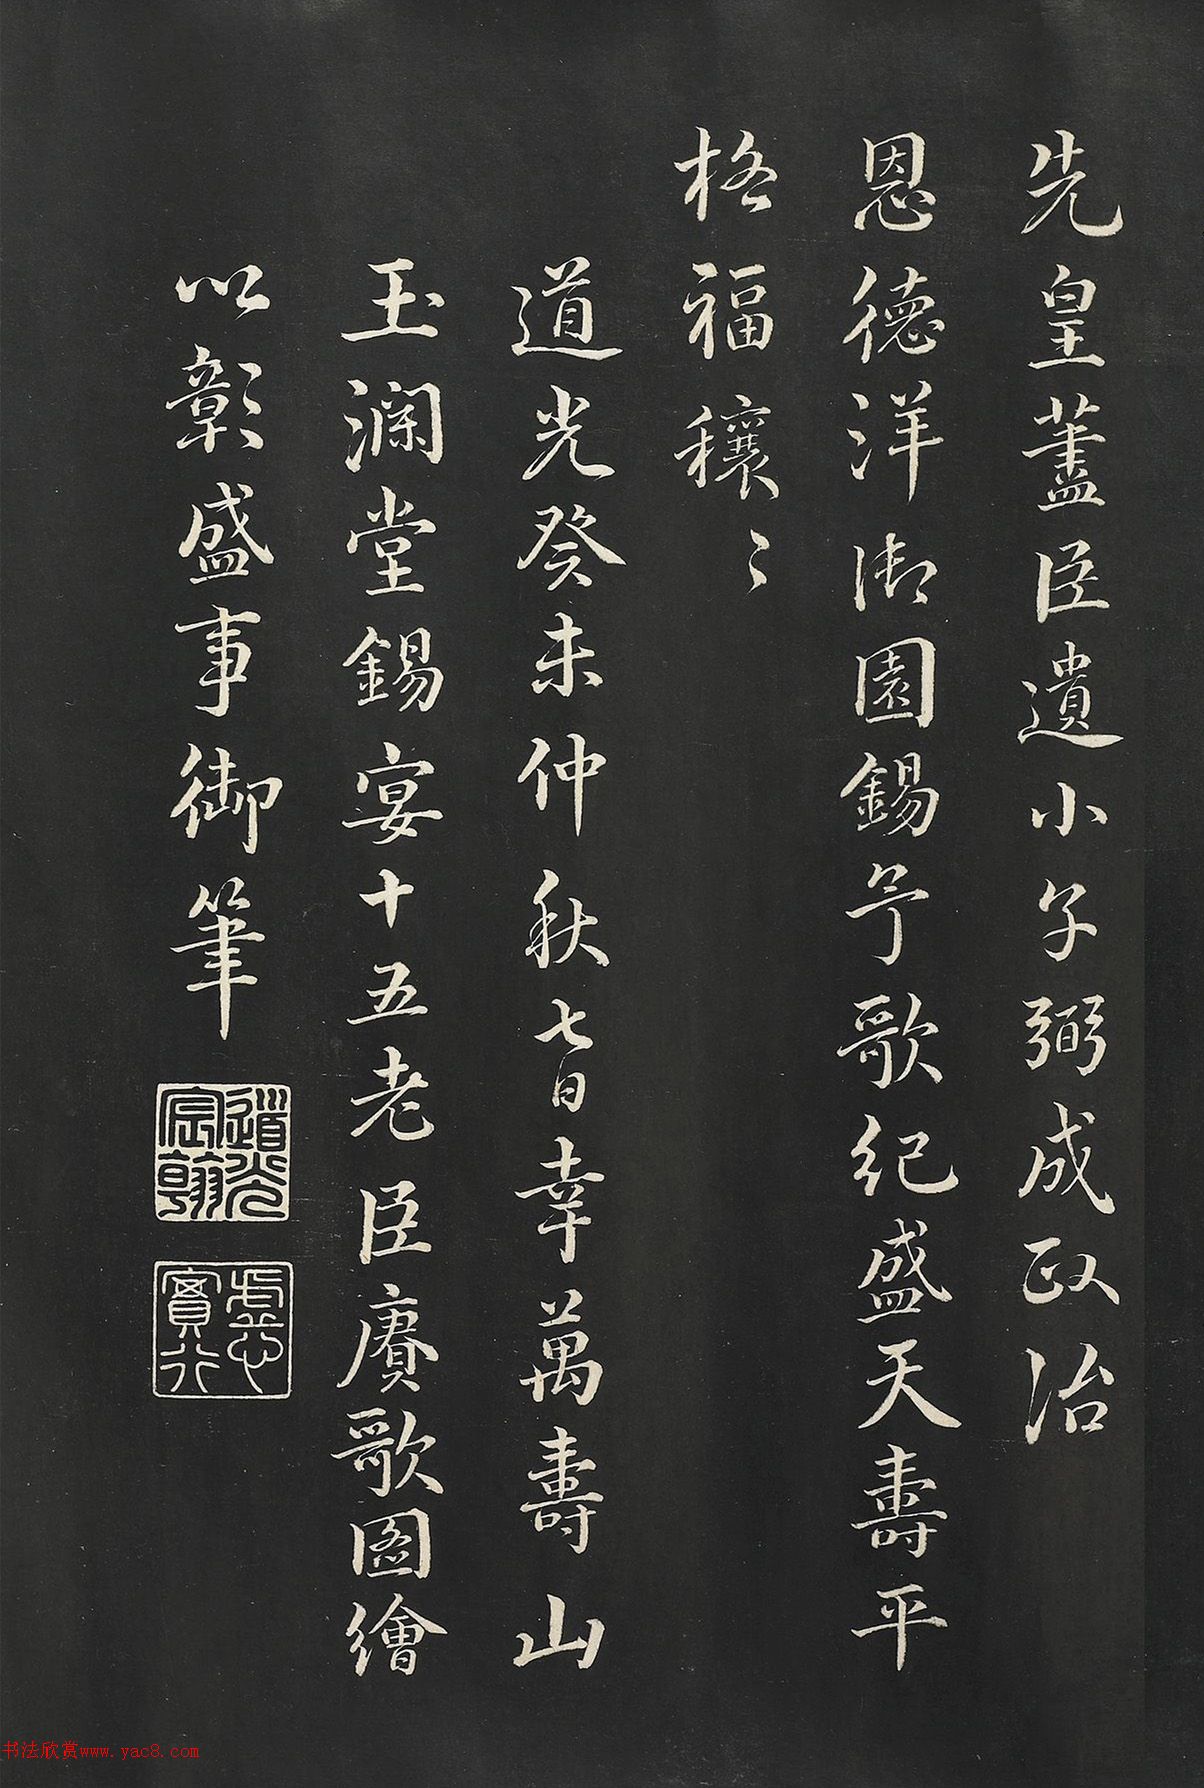 先皇藎臣遺小子弼成政治
恩德洋洋御園錫予歌紀盛天壽平
格福穰〻
道光癸未仲秋七日幸萬壽山
玉瀾堂錫宴十五老臣賡歌圖繪
以彰盛事御筆
道光宸翰
虛心實行
书法欣赏www.yac8.com